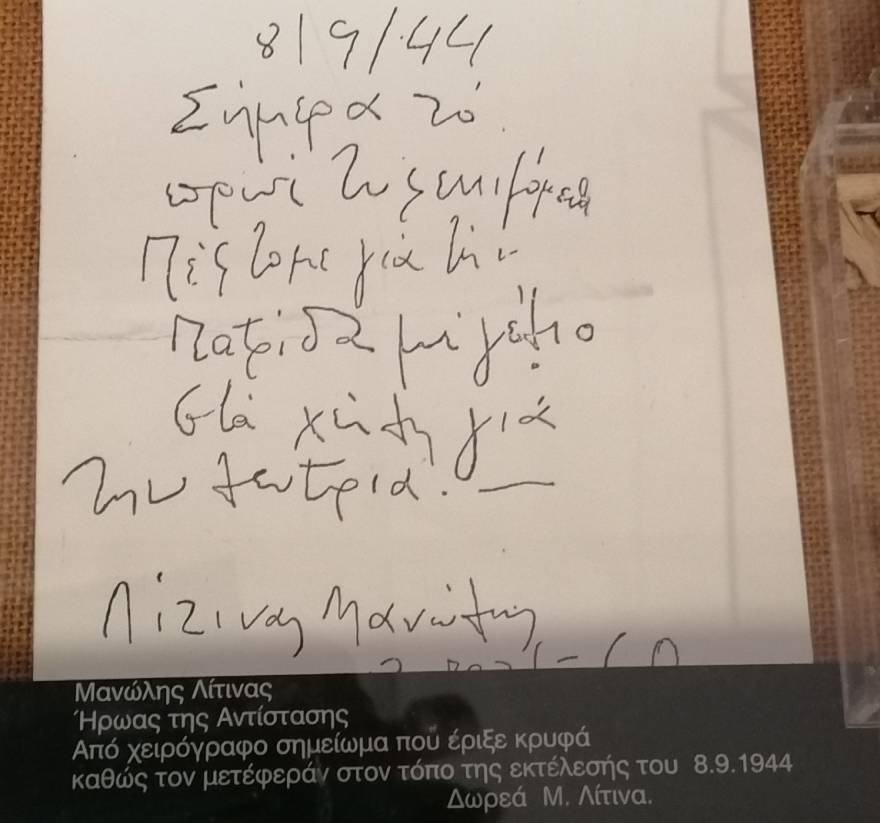 8/9/44
Σήμερα τό
πρωί τυφεκιζόμεθα
Πέφτομε γιά τήν
Πατρίδα μέ γέλιο
στά χείλη γιά
την λευτεριά. —
Λίτινας Μανώλης
Μανώλης Λίτινας
Ήρωας της Αντίστασης
Από χειρόγραφο σημείωμα που έριξε κρυφά
καθώς τον μετέφεραν στον τόπο της εκτέλεσής του 8.9.1944
Δωρεά Μ. Λίτινα.